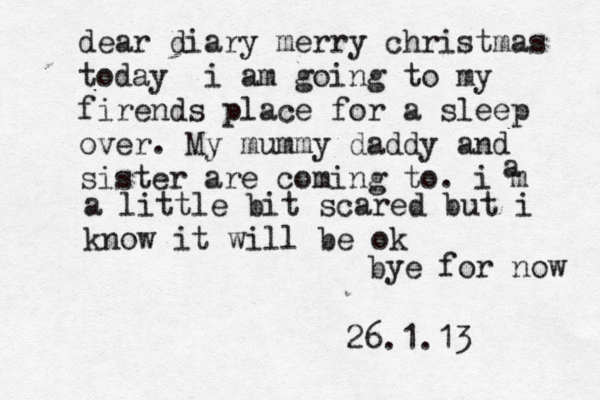 dear diary merry christmas
today i am going to my
firends place for a sleep
over. My mummy daddy and
sister are coming to. i am
a little bit scared but i
know it will be ok
bye for now
26.1.13